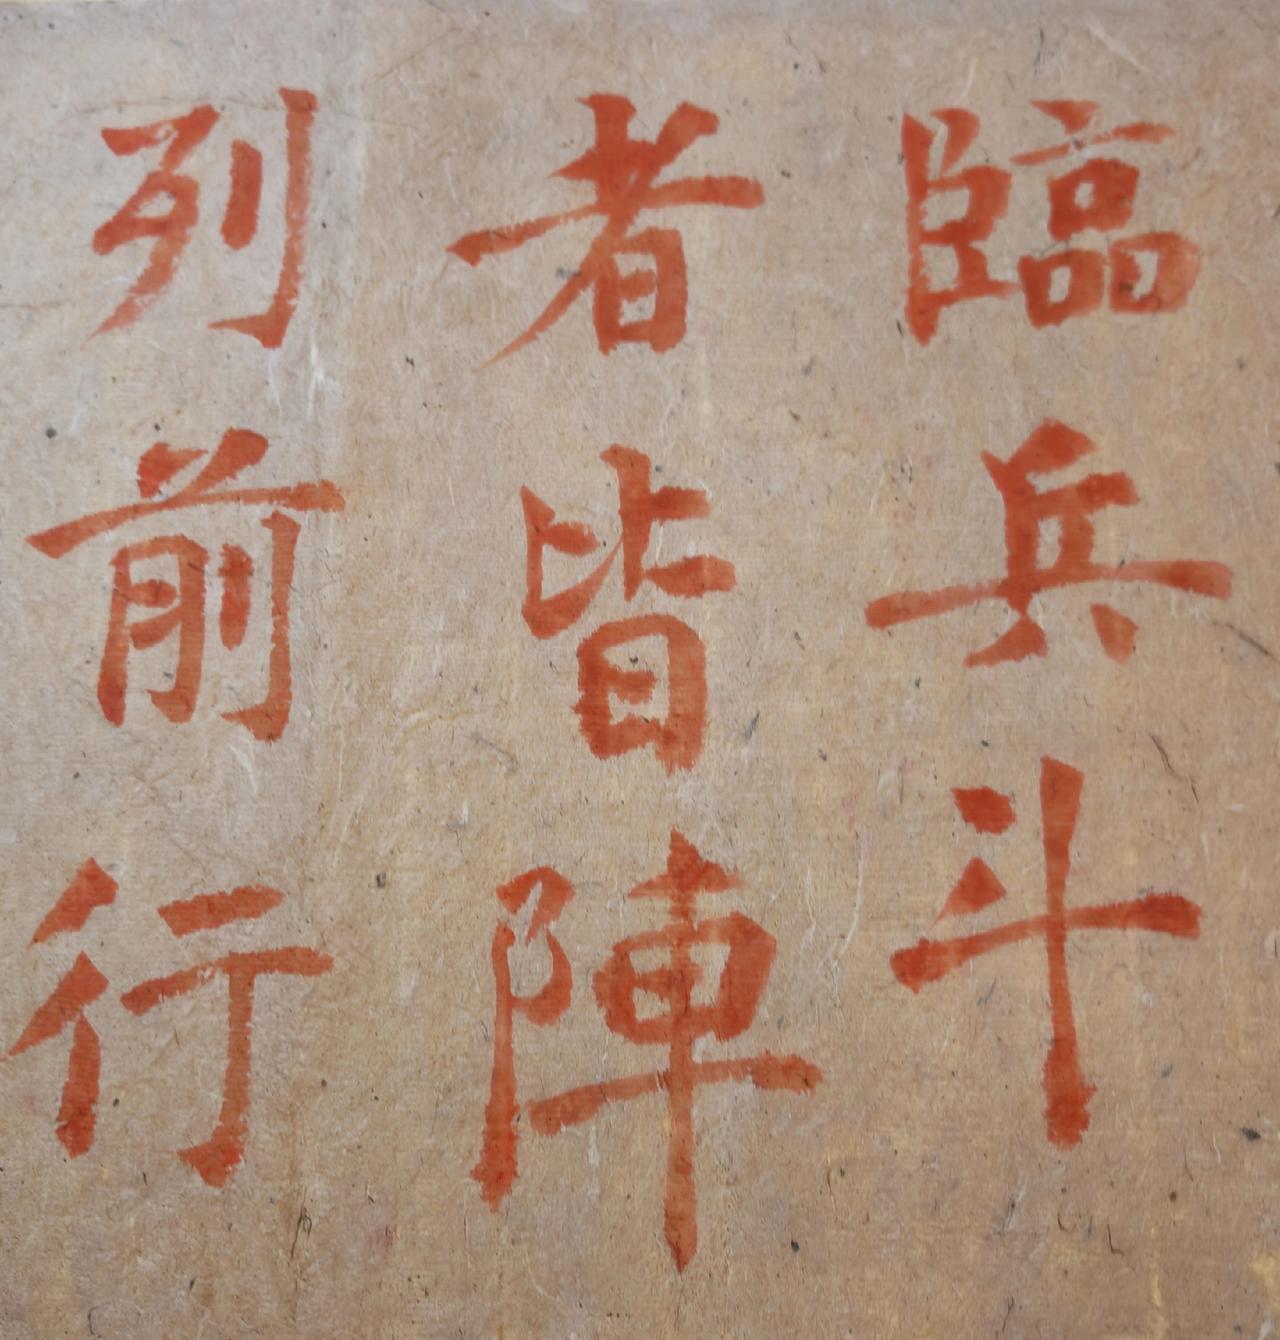 臨兵斗
者皆陣
列前行